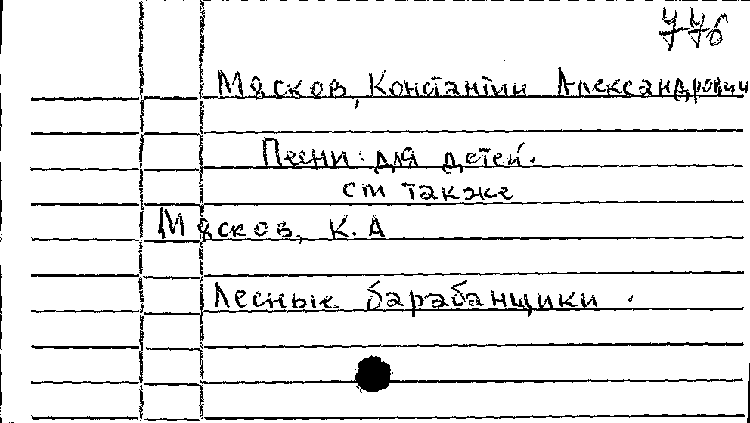 776
Мясков, Константин Александрович
Песни для детей.
см также
Мясков, К. А
Лесные барабанщики.